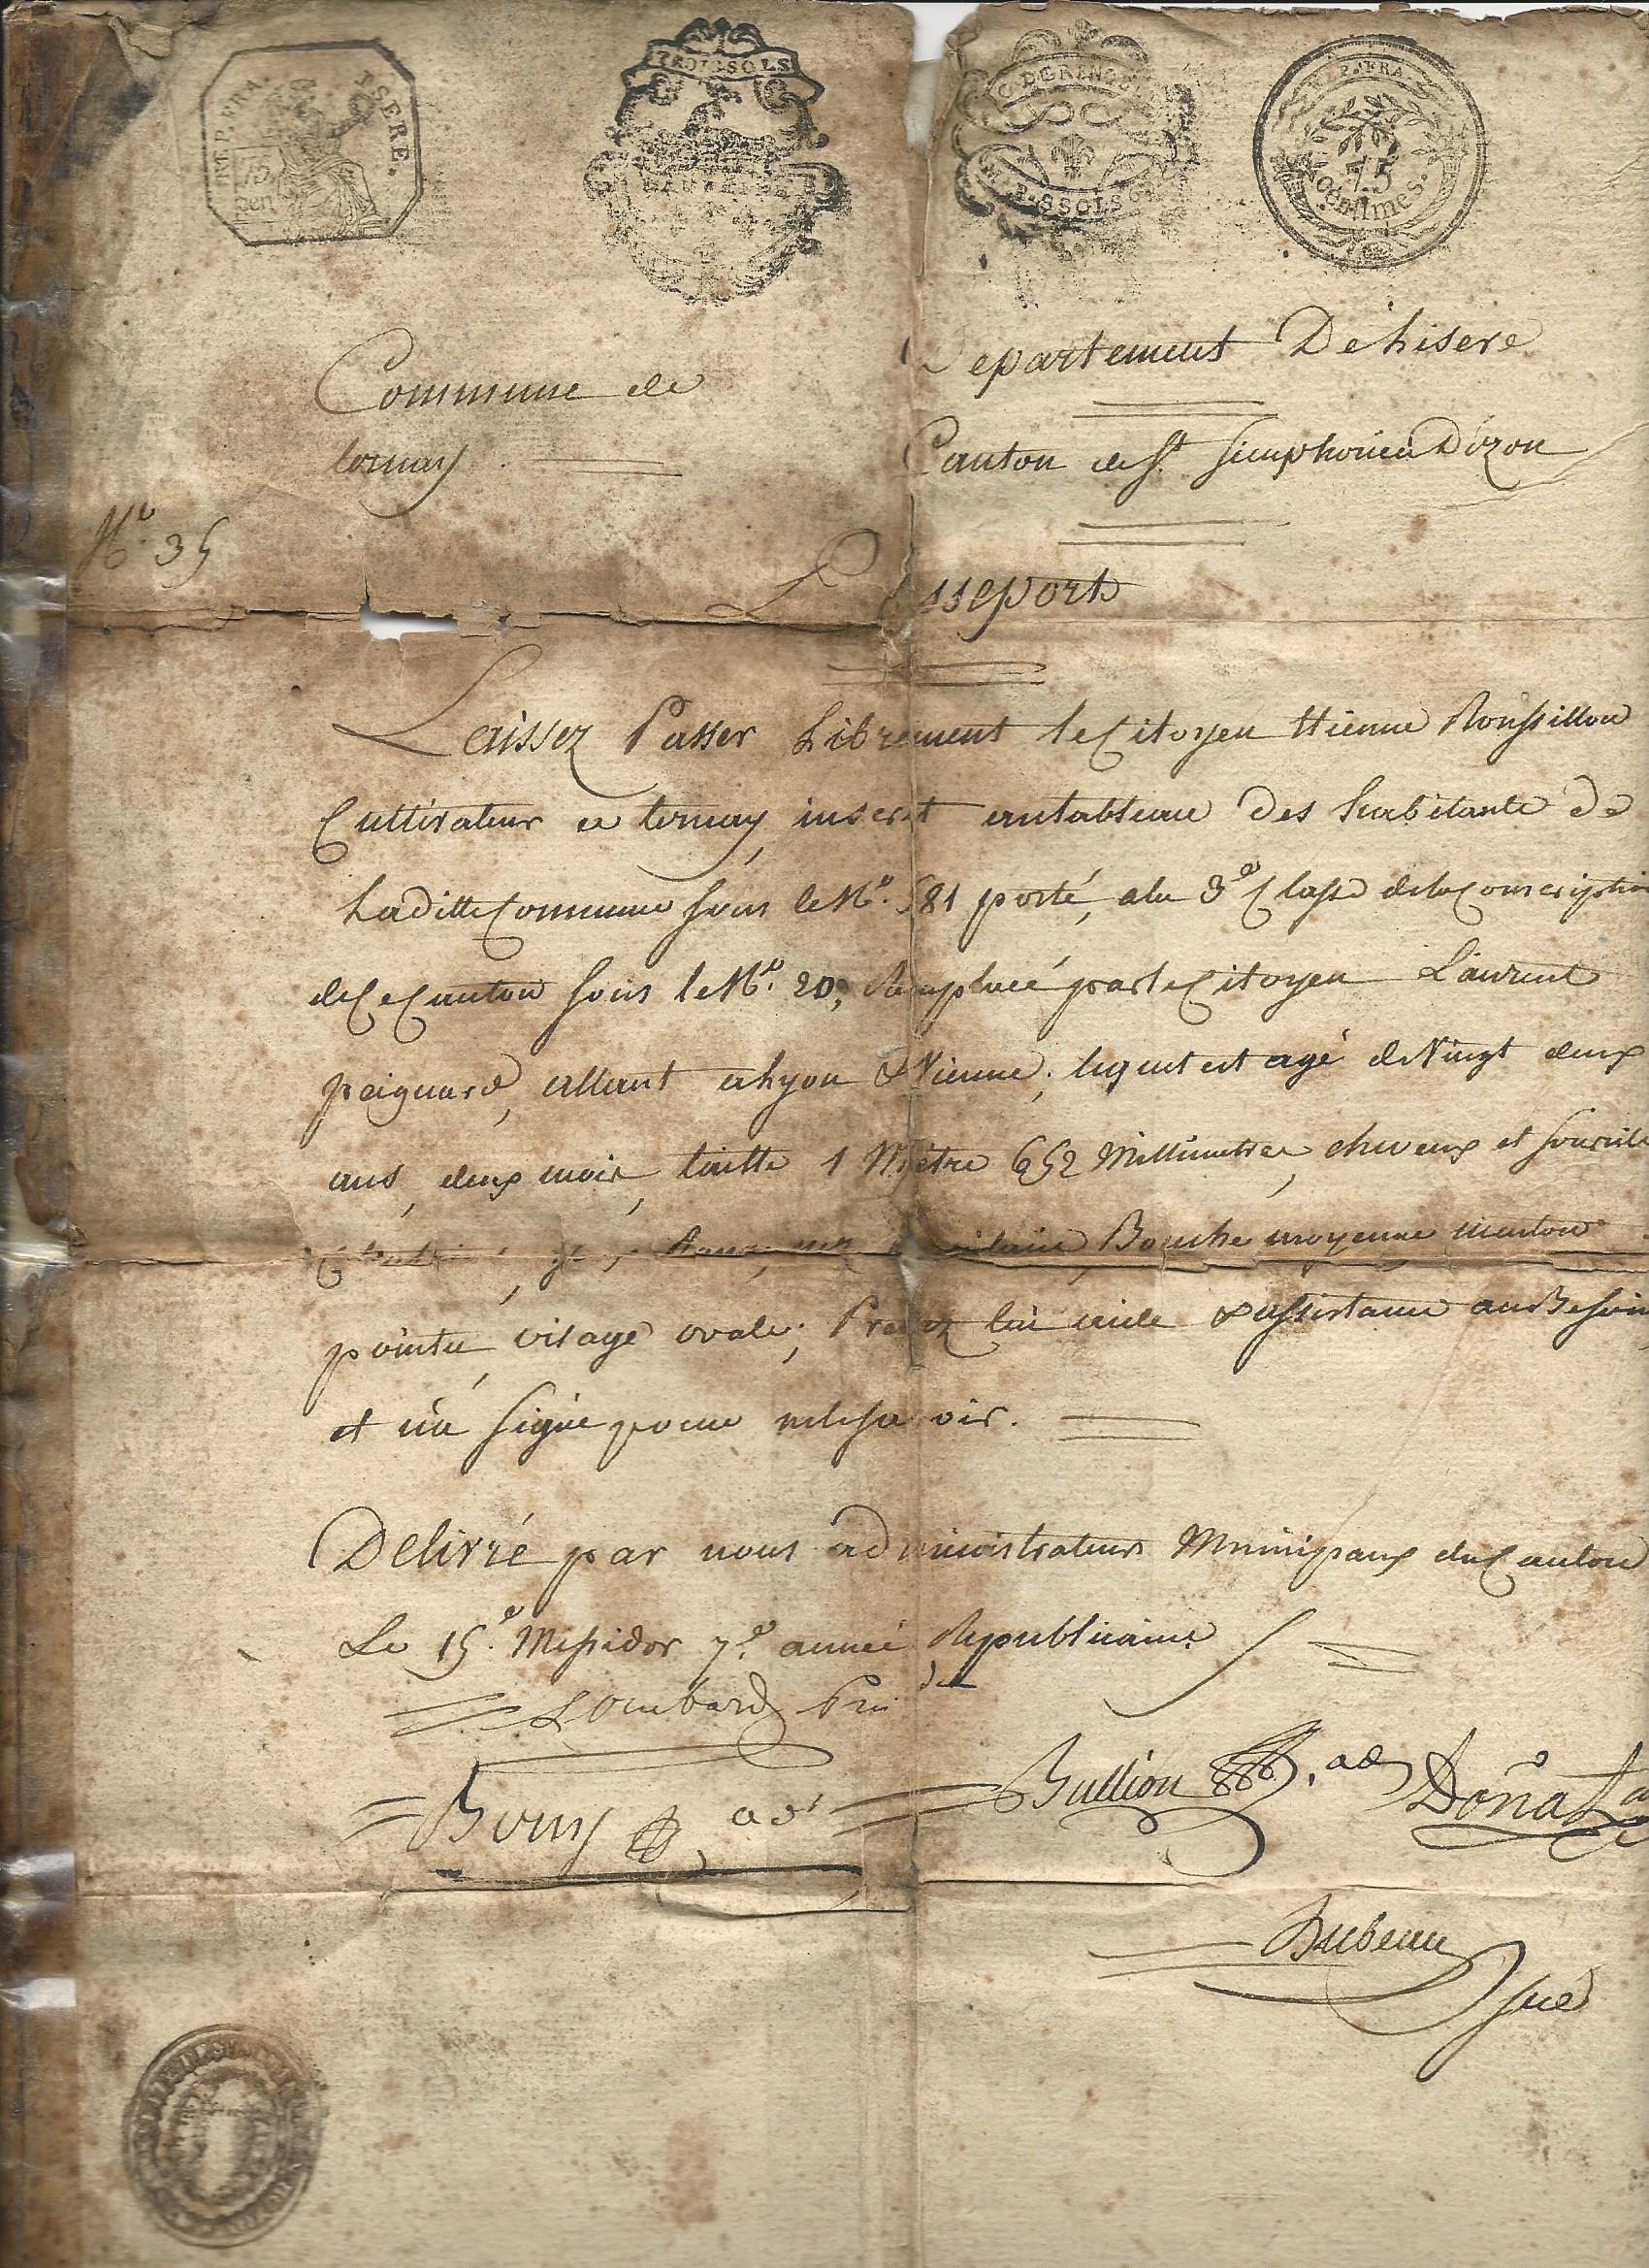 REP. FRA.
ISERE.
75
cen
SOLS
G. D GRENOBLE
SSOLS
REP. FRA.
75
centimes.
Commune de
ternay
Departement De Lisere
Canton de St. Simphorien Dozon
No. 35
Passeport
Laissez Passer Librement le Citoyen Etienne Roussillon
Cultivateur a ternay, inscrit au tableau des habitants de
Laditte Commune sous le No. 581 porté, a la 3e Classe de la Conscription
de Ce Canton sous le No. 20, Remplacé par le Citoyen Laurent
peignard, allant a Lyon & Vienne; lequel est agé de Vingt deux
ans, deux mois, taille 1 Mètre 652 Millimetres, cheveux et sourcils
nez Bouche moyenne menton
pointu, visage ovale; Pretez lui aide & assistance au Besoin,
et n'a signé pour ne le savoir.
Delivré par nous administrateurs Municipaux du Canton
Le 15e. Messidor 7e. année Republicaine
Lombard Pridet
Bony adt
Bullion ad
Donat a
Dubeau
sre